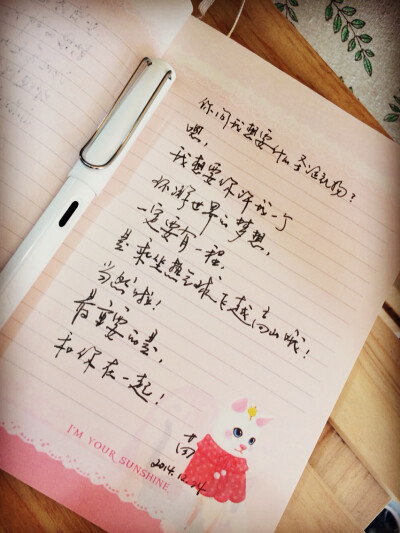 你问我想要什么圣诞礼物？
嗯，
我想要你许我一个
环游世界的梦想，
一定要有一程，
是乘坐热气球飞越高山哦！
当然啦！
最重要的是，
和你在一起！
苗
2014.12.24
I'M YOUR SUNSHINE